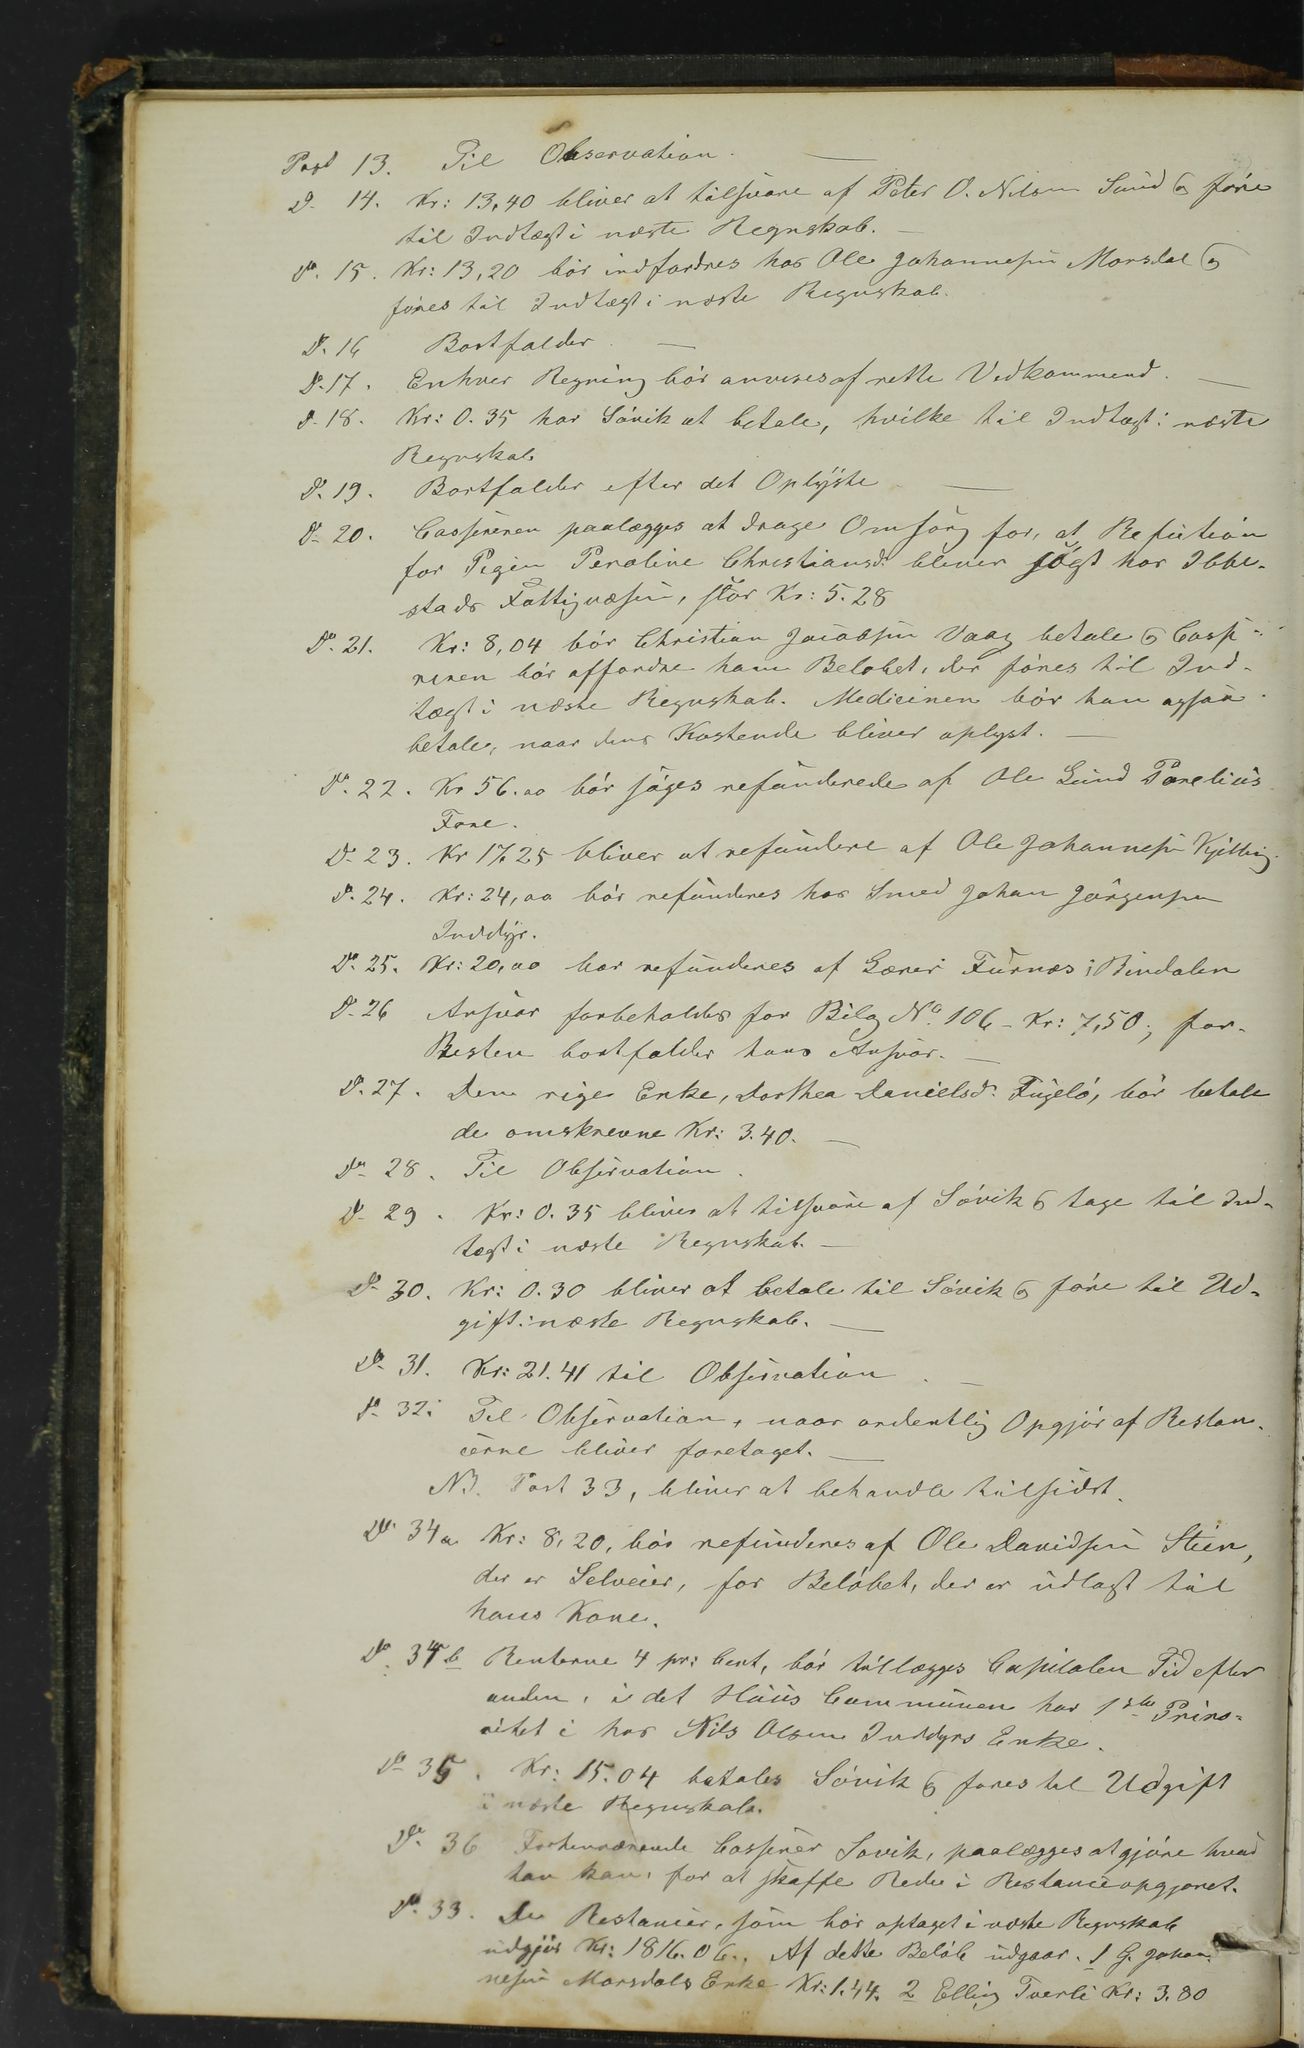 Post 13. Til Observation. —
Do. 14. Kr: 13,40 bliver at tilsvare af Peter O. Nilsen Sund & føre
til Indtægt i næste Regnskab. —
Do. 15. Kr: 13,20 bør indfordres hos Ole Johannesen Morsdal &
føres til Indtægt i næste Regnskab.
Do. 16 Bortfalder. —
Do. 17. Enhver Regning bør anvises af rette Vedkommend. —
Do. 18. Kr: 0.35 har Søvik at betale, hvilke til Indtægt i næste
Regnskab
Do. 19. Bortfalder efter det Oplyste —
Do. 20. Cassereren paalægges at drage Omsorg for, at Refution
for Pigen Peroline Christiansd. bliver søgt hos Ibbe-
stads Fattigvæsen, stor Kr: 5.28
Do. 21. Kr: 8,04 bør Christian Jacobsen Vaag betale & Casse-
reren bør affordre ham Beløbet, der føres til Ind-
tægt i næste Regnskab. Medicinen bør han ogsaa
betale, naar dens Kostende bliver oplyst. —
Do. 22. Kr 56.00 bør søges refunderede af Ole Lund Parelius
Fore.
Do. 23. Kr 17.25 bliver at refundere af Ole Johannesen Kjelling.
Do. 24. Kr: 24,00 bør refunderes hos Smed Johan Jørgensen
Inddyr.
Do. 25. Kr: 20,00 bør refunderes af Lærer Furnæs i Bindalen
Do. 26 Ansvar forbeholdes for Bilag No. 106 – Kr: 7,50; for
Resten bortfalder hans Ansvar. —
Do. 27. Den rige Enke, Dorthea Danielsd. Fugelø, bør betale
de omskrevne Kr: 3.40. —
Do. 28. Til Observation.
Do. 29. Kr: 0.35 bliver at tilsvare af Søvik & tage til Ind-
tægt i næste Regnskab. —
Do. 30. Kr: 0.30 bliver at betale til Søvik & føre til Ud-
gift i næste Regnskab. —
Do. 31. Kr: 21.41 til Observation. —
Do. 32. Til Observation, naar ordentlig Opgjør af Restan-
cerne bliver foretaget. —
NB. Post 33, bliver at behandle tilsidst.
Do. 34a Kr: 8,20, bør refunderes af Ole Davidsen Steen,
der er Selveier, for Beløbet, der er udlagt til
hans Kone.
Do. 34b Renterne 4 pr: Cent, bør tillægges Capitalen Tid efter
anden, i det Huus Communen har 1ste Priro-
ritet i hos Nils Olsen Inddyrs Enke.
Do. 35. Kr: 15.04 betales Søvik & føres til Udgift
i næste Regnskab.
Do. 36 Forhenværende Casserer Søvik, paalægges at gjøre hvad
han kan, for at skaffe Rede i Restanceopgjøret.
Do. 33. De Restancer, som bør optaget i næste Regnskab
udgjør Kr: 1816.06. Af dette Beløb udgaar. 1 G. Johan-
nesen Morsdals Enke Kr: 1.44. 2 Elling Tverli Kr: 3.80